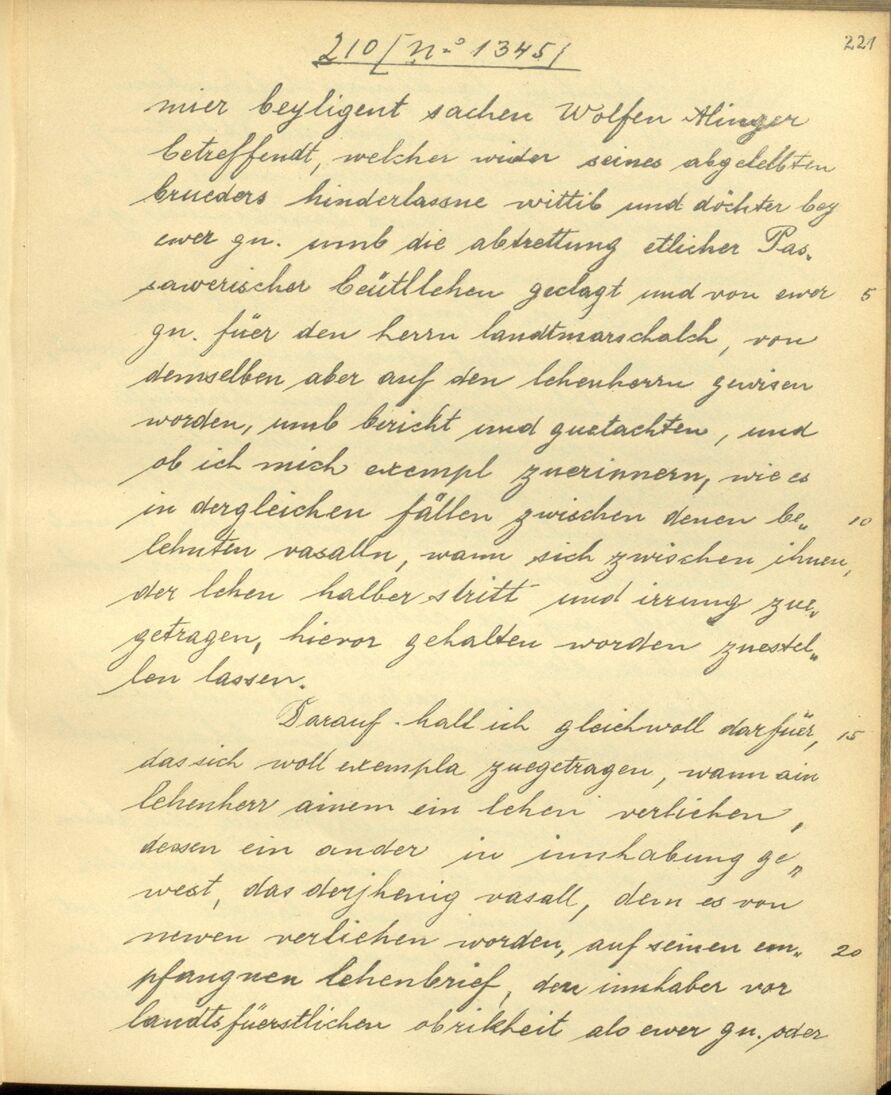 210 [nº 1345]
221
mier beyligent sachen Wolfen Alinger
betreffendt, welcher wider seines abgeleibten
brueders hinderlassne wittib und döchter bey
ewer gn. umb die abtrettung etlicher Pas„
sawerischer beütllehen geclagt und von ewer 5
gn. füer den herrn landtmarschalch, von
demselben aber auf den lehenherrn gewisen
worden, umb bericht und guetachten, und
ob ich mich exempl zuerinnern, wie es
in dergleichen fällen zwischen denen be„ 10
lehnten vasalln, wann sich zwischen ihnen,
der lehen halber stritt und irrung zue„
getragen, hievor gehalten worden zuestel„
len lassen.
Darauf halt ich gleichwoll darfüer, 15
das sich woll exempla zuegetragen, wann ain
lehenherr ainem ein lehen verliehen,
dessen ein ander in innhabung ge„
west, das derjhenig vasall, dem es von
newen verliehen worden, auf seinen em„ 20
pfangnen lehenbrief, den innhaber vor
landtsfüerstlichen obrikheit als ewer gn. oder